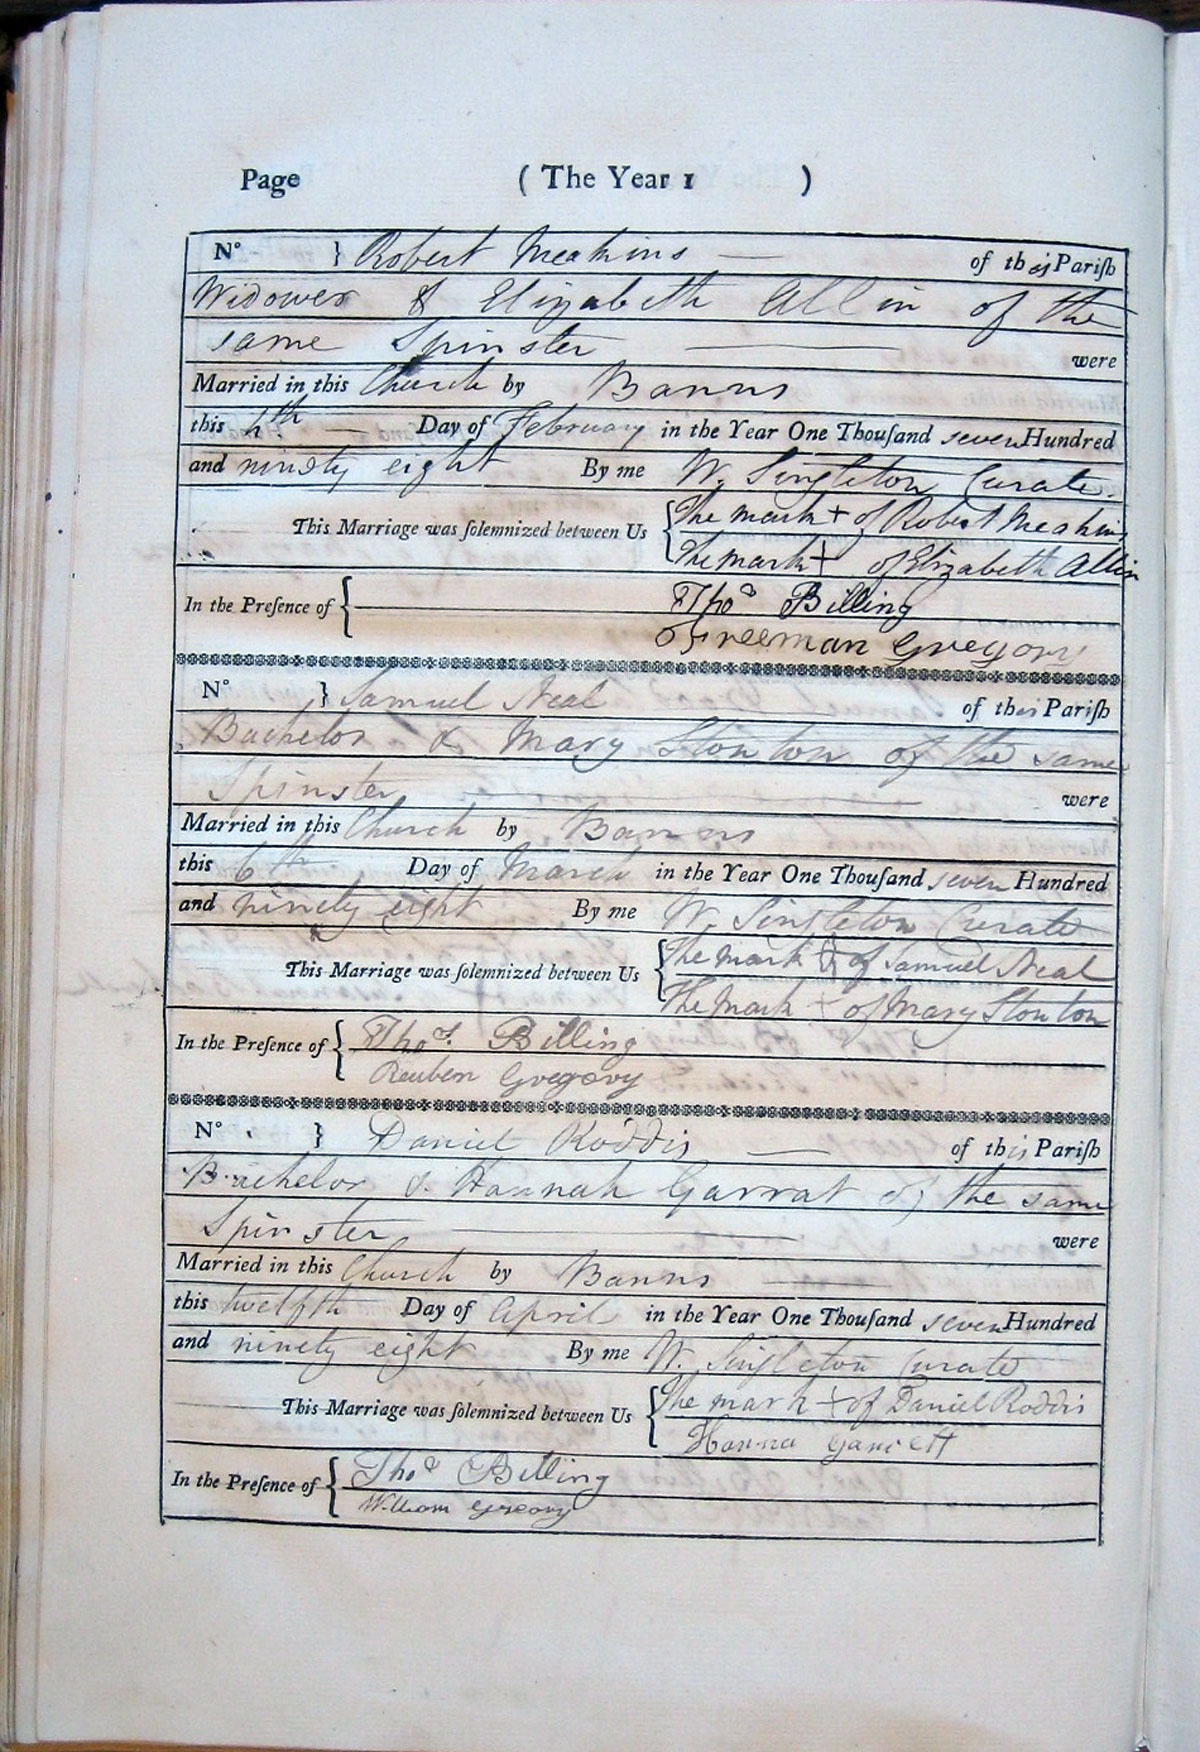 Page (The Year 1 )
N° } Robert Meakins — of this Pariſh
Widower & Elizabeth Allin of the
same Spinster — were
Married in this Church by Banns
this 4th — Day of February in the Year One Thouſand seven Hundred
and ninety eight By me W. Singleton Curate.
This Marriage was ſolemnized between Us { The mark + of Robert Meakins
The mark + of Elizabeth Allin
In the Preſence of { Thos Billing
Freeman Gregory
N° } Samuel Neal of this Pariſh
Bachelor & Mary Stonton of the same
Spinster — were
Married in this Church by Banns
this 6th Day of March in the Year One Thouſand seven Hundred
and ninety eight By me W. Singleton Curate
This Marriage was ſolemnized between Us { The mark of Samuel Neal
The Mark + of Mary Stonton
In the Preſence of { Thos. Billing
Reuben Gregory
N° } Daniel Roddis — of this Pariſh
Bachelor & Hannah Garrat of the same
Spinster — were
Married in this Church by Banns
this twelfth Day of April in the Year One Thouſand seven Hundred
and ninety eight By me W. Singleton Curate
This Marriage was ſolemnized between Us { The mark + of Daniel Roddis
Hanna Garrett
In the Preſence of { Thos Billing
William Gregory